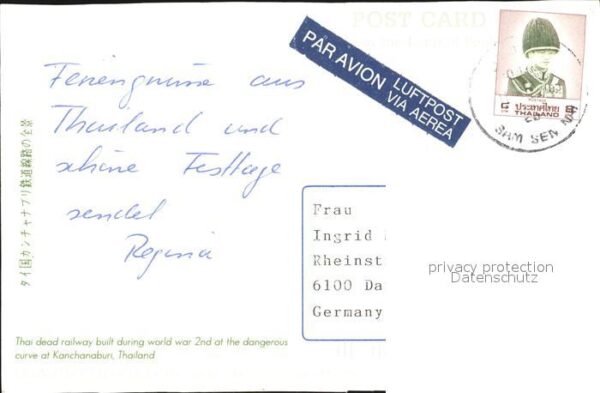 POST CARD
PAR AVION LUFTPOST
VIA AEREA
ประเทศไทย
THAILAND
SAM SEN NAI
Feriengrüsse aus
Thailand und
schöne Festtage
sendet
Regina
タイ国カンチャナブリ鉄道線路の全景
Frau
Ingrid
Rheinst
6100 Da
Germany
privacy protection
Datenschutz
Thai dead railway built during world war 2nd at the dangerous
curve at Kanchanaburi, Thailand